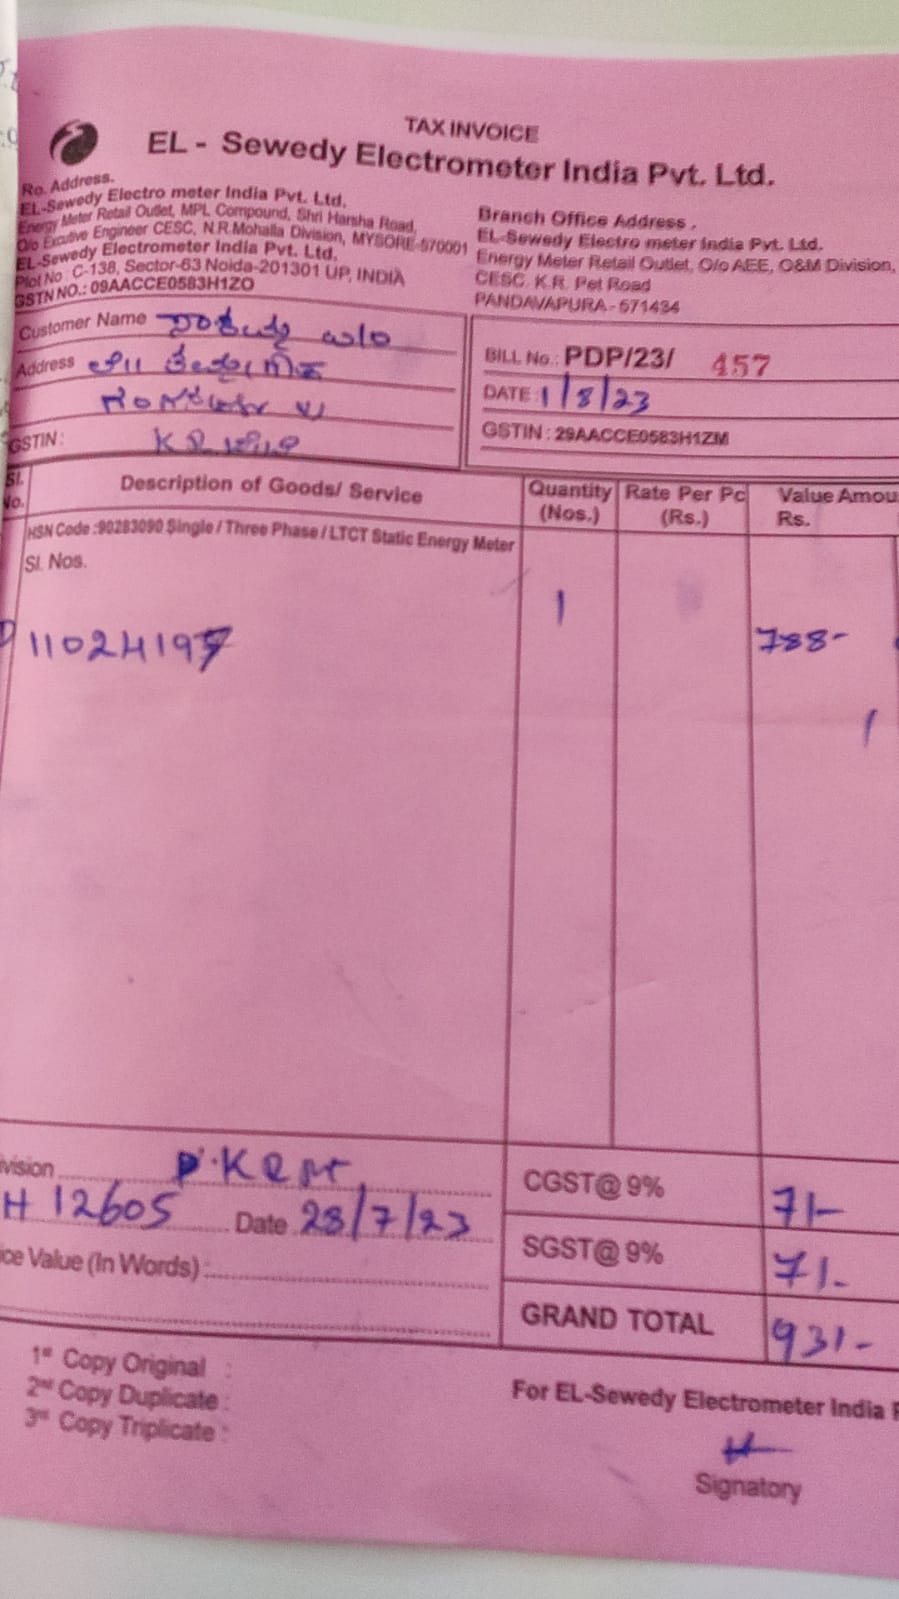 TAX INVOICE
EL - Sewedy Electrometer India Pvt. Ltd.
Ro. Address.
EL-Sewedy Electro meter India Pvt. Ltd.
Energy Meter Retail Outlet, MPL Compound, Shri Harsha Road,
O/o Excutive Engineer CESC, N.R.Mohalla Division, MYSORE-570001
EL-Sewedy Electrometer India Pvt. Ltd.
Plot No : C-138, Sector-63 Noida-201301 UP, INDIA
GSTN NO.: 09AACCE0583H1ZO
Branch Office Address .
EL-Sewedy Electro meter India Pvt. Ltd.
Energy Meter Retail Outlet, O/o AEE, O&M Division,
CESC. K.R. Pet Road
PANDAVAPURA - 571434
Customer Name
Address
GSTIN :
BILL No.: PDP/23/ 457
DATE : 1/8/23
GSTIN : 29AACCE0583H1ZM
Sl. No. Description of Goods/ Service Quantity (Nos.) Rate Per Pc (Rs.) Value Amou Rs.
HSN Code :90283090 Single / Three Phase / LTCT Static Energy Meter
Sl. Nos.
1
788-
CGST@ 9% 71-
SGST@ 9% 71-
GRAND TOTAL 931-
vision
H 12605 Date 28/7/23
ice Value (In Words) :
1st Copy Original :
2nd Copy Duplicate :
3rd Copy Triplicate :
For EL-Sewedy Electrometer India P
Signatory